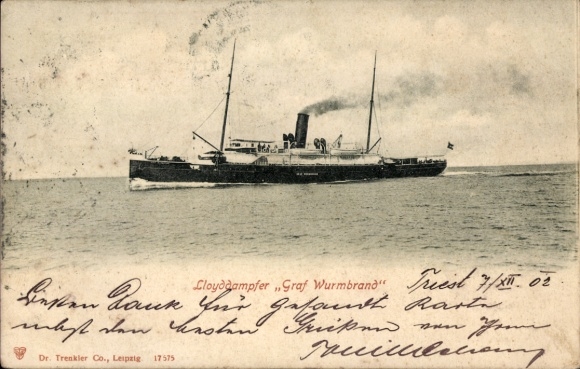 Lloyddampfer „Graf Wurmbrand"
Triest 7/XII. 02
Lieben Dank für gesandte Karte
nebst den besten Grüßen von Ihrem
Dr. Trenkler Co., Leipzig. 17575